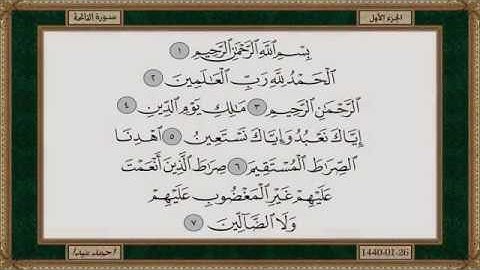 الجزء الأول
سورة الفاتحة
بِسْمِ ٱللَّهِ ٱلرَّحْمَٰنِ ٱلرَّحِيمِ ١
ٱلْحَمْدُ لِلَّهِ رَبِّ ٱلْعَٰلَمِينَ ٢
ٱلرَّحْمَٰنِ ٱلرَّحِيمِ ٣ مَٰلِكِ يَوْمِ ٱلدِّينِ ٤
إِيَّاكَ نَعْبُدُ وَإِيَّاكَ نَسْتَعِينُ ٥ ٱهْدِنَا
ٱلصِّرَٰطَ ٱلْمُسْتَقِيمَ ٦ صِرَٰطَ ٱلَّذِينَ أَنْعَمْتَ
عَلَيْهِمْ غَيْرِ ٱلْمَغْضُوبِ عَلَيْهِمْ
وَلَا ٱلضَّآلِّينَ ٧
1440-01-26